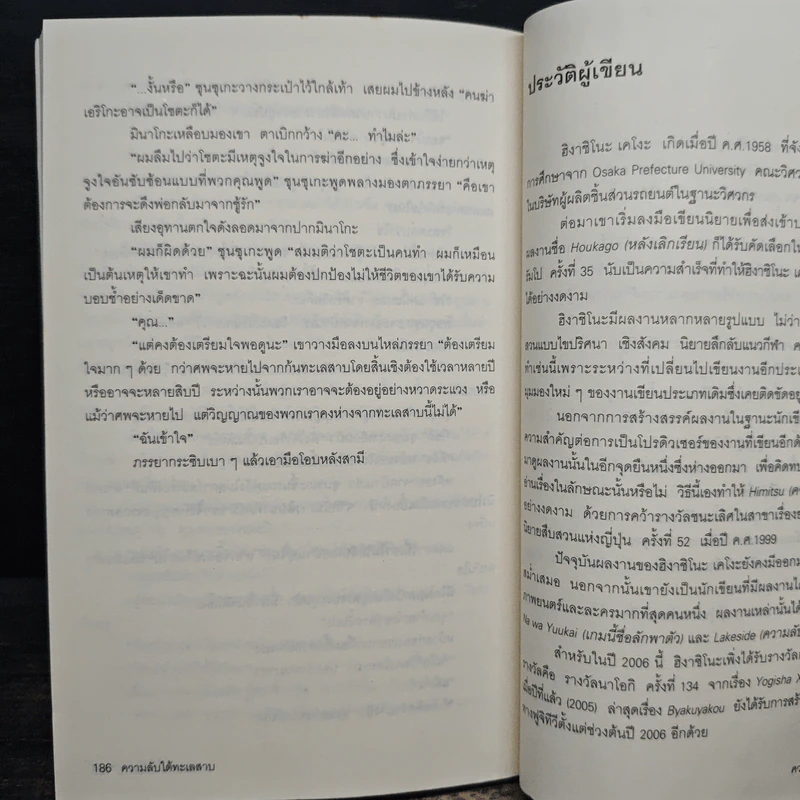 “...งั้นหรือ” ชุนซุเกะวางกระเป๋าไว้ใกล้เท้า เสยผมไปข้างหลัง “คนฆ่า
เอริโกะอาจเป็นโชตะก็ได้”
มินาโกะเหลือบมองเขา ตาเบิกกว้าง “คะ... ทำไมล่ะ”
“ผมลืมไปว่าโชตะมีเหตุจูงใจในการฆ่าอีกอย่าง ซึ่งเข้าใจง่ายกว่าเหตุ
จูงใจอันซับซ้อนแบบที่พวกคุณพูด” ชุนซุเกะพูดพลางมองตาภรรยา “คือเขา
ต้องการจะดึงพ่อกลับมาจากชู้รัก”
เสียงอุทานตกใจดังลอดมาจากปากมินาโกะ
“ผมก็ผิดด้วย” ชุนซุเกะพูด “สมมติว่าโชตะเป็นคนทำ ผมก็เหมือน
เป็นต้นเหตุให้เขาทำ เพราะฉะนั้นผมต้องปกป้องไม่ให้ชีวิตของเขาได้รับความ
บอบช้ำอย่างเด็ดขาด”
“คุณ...”
“แต่คงต้องเตรียมใจพอดูนะ” เขาวางมือลงบนไหล่ภรรยา “ต้องเตรียม
ใจมาก ๆ ด้วย กว่าศพจะหายไปจากก้นทะเลสาบโดยสิ้นเชิงต้องใช้เวลาหลายปี
หรืออาจจะหลายสิบปี ระหว่างนั้นพวกเราอาจจะต้องอยู่อย่างหวาดระแวง หรือ
แม้ว่าศพจะหายไป แต่วิญญาณของพวกเราคงห่างจากทะเลสาบนี้ไม่ได้”
“ฉันเข้าใจ”
ภรรยากระซิบเบา ๆ แล้วเอามือโอบหลังสามี
186 ความลับใต้ทะเลสาบ
ประวัติผู้เขียน
ฮิงาชิโนะ เคโงะ เกิดเมื่อปี ค.ศ.1958 ที่จัง
การศึกษาจาก Osaka Prefecture University คณะวิศว
ในบริษัทผู้ผลิตชิ้นส่วนรถยนต์ในฐานะวิศวกร
ต่อมาเขาเริ่มลงมือเขียนนิยายเพื่อส่งเข้าป
ผลงานชื่อ Houkago (หลังเลิกเรียน) ก็ได้รับคัดเลือกใน
รัมโป ครั้งที่ 35 นับเป็นความสำเร็จที่ทำให้ฮิงาชิโนะ เค
ได้อย่างงดงาม
ฮิงาชิโนะมีผลงานหลากหลายรูปแบบ ไม่ว่า
สวนแบบไขปริศนา เชิงสังคม นิยายลึกลับแนวกีฬา ค
ทำเช่นนี้เพราะระหว่างที่เปลี่ยนไปเขียนงานอีกประเ
มุมมองใหม่ ๆ ของงานเขียนประเภทเดิมซึ่งเคยติดขัดอยู่
นอกจากการสร้างสรรค์ผลงานในฐานะนักเขี
ความสำคัญต่อการเป็นโปรดิวเซอร์ของงานที่เขียนอีกด้
มาดูผลงานนั้นในอีกจุดยืนหนึ่งซึ่งห่างออกมา เพื่อคิดทบ
อ่านเรื่องในลักษณะนั้นหรือไม่ วิธีนี้เองทำให้ Himitsu (ค
อย่างงดงาม ด้วยการคว้ารางวัลชนะเลิศในสาขาเรื่องย
นิยายสืบสวนแห่งญี่ปุ่น ครั้งที่ 52 เมื่อปี ค.ศ.1999
ปัจจุบันผลงานของฮิงาชิโนะ เคโงะยังคงมีออกม
สม่ำเสมอ นอกจากนั้นเขายังเป็นนักเขียนที่มีผลงานได้
ภาพยนตร์และละครมากที่สุดคนหนึ่ง ผลงานเหล่านั้นได้
Na wa Yuukai (เกมนี้ชื่อลักพาตัว) และ Lakeside (ความลับ
สำหรับในปี 2006 นี้ ฮิงาชิโนะเพิ่งได้รับรางวัล
รางวัลคือ รางวัลนาโอกิ ครั้งที่ 134 จากเรื่อง Yogisha X
เมื่อปีที่แล้ว (2005) ล่าสุดเรื่อง Byakuyakou ยังได้รับการสร้
ทางฟูจิทีวีตั้งแต่ช่วงต้นปี 2006 อีกด้วย